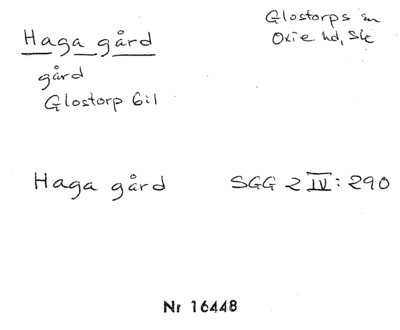 Haga gård
Glostorps sn
Oxie hd, Sk
gård
Glostorp 6:1
Haga gård SGG 2 IV: 290
Nr 16448